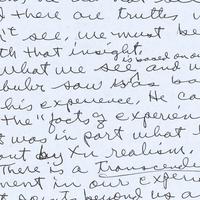 there are truths, w
't see, we must be
th that insight,
is based on ou
what we see and w
bulr saw was ba
his experience. He ca
the "facts of experien
was in part what
out by Xn realism.
There is a transcende
ment in our experie
t points beyond us a